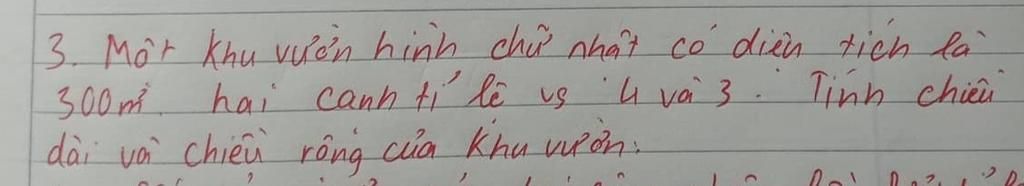 3. Một khu vườn hình chữ nhất có diện tích là
300m². hai cạnh tỉ lệ vs 4 và 3. Tính chiều
dài và chiều rộng của khu vườn.